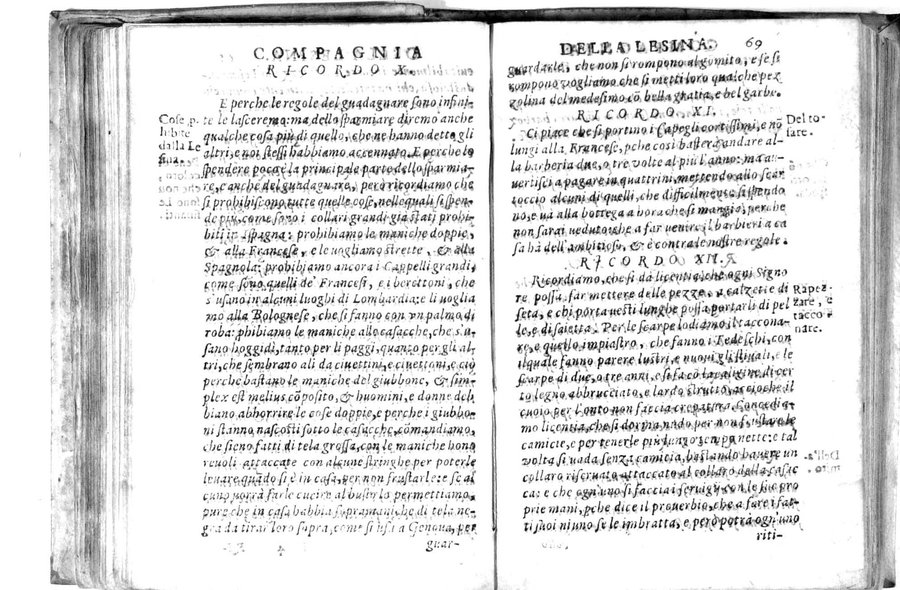 COMPAGNIA
RICORDO X.
E perche le regole del guadagnare sono infini-
te le lasceremo: ma dello sparmiare diremo anche
qualche cosa più di quello, che ne hanno detto gli
altri, e noi stessi habbiamo accennato. E perche lo
spendere poco è la principale parte dello sparmia-
re, e anche del guadagnare, però ricordiamo che
si prohibiscono tutte quelle cose, nelle quali si spen-
de più, come sono i collari grandi già stati prohi-
biti in Ispagna: prohibiamo le maniche doppie,
& alla Francese, e le uogliamo strette, & alla
Spagnola: prohibiamo ancora i Cappelli grandi,
come sono quelli de' Francesi, e i berettoni, che
s'usano in alcuni luoghi di Lombardia: e li uoglia
mo alla Bolognese, che si fanno con vn palmo di
roba: phibiamo le maniche alle casacche, che s'u-
sano hoggidì, tanto per li paggi, quanto per gli al-
tri, che sembrano ali da ciuettini, e ciuettoni, e ciò
perche bastano le maniche del giubbone, & sim-
plex est melius cōposito, & huomini, e donne deb
biano abhorrire le cose doppie, e perche i giubbo-
ni stanno nascosti sotto le casacche, comandiamo,
che sieno fatti di tela grossa, con le maniche hono
reuoli attaccate con alcune stringhe per poterle
leuare quādo si è in casa, per non frustarle: e se al
cuno vorrà farle cucire al busto lo permettiamo,
pure che in casa habbia sopramani, che di tela ne-
gra da tirar loro sopra, come si usa a Genoua, per
guar-
Cose p.
hibite
dalla Le
sina.
DELLA LESINA. 69
guardarle, che non si rompono al gomito, e se si
rompono vogliamo che si metti loro qualche pez
zolina del medesimo cō bella gratia, e bel garbo.
RICORDO XI.
Ci piace che si portino i Capegli cortissimi, e nō
lungi alla Francese, pche così basterà andare al-
la barberia due, o tre volte al più l'anno: ma a-
uertisci a pagare in quattrini, mettendo allo scar
toccio alcuni di quelli, che difficilmente si spendo
no, e uà alla bottega a hora che si mangi, perche
non sarai ueduto, che a far uenire il barbieri a ca
sa hà dell'ambitioso, & è contra le nostre regole.
Del to-
sare.
RICORDO XII.
Ricordiamo, che si dà licentia, che ogni Signo
re possa far mettere delle pezze a calzette di
seta, e chi porta uesti lunghe possa portarle di pel
le, o di saietta. Per le scarpe lodiamo il taccona-
re, e quello impiastro, che fanno i Tedeschi, con
il quale fanno parere lustri, e nuoui gli stiuali, e le
scarpe di due, o tre anni, e si fa cō la caligine di cer
to legno abbrucciato, e lardo strutto, accioche il
cuoio per l'onto non faccia crepatura. Concedia-
mo licentia, che si dorma nudo per non frustare le
camicie, e per tenerle più lungo tempo nette: e tal
volta si uada senza camicia, bastando hauere un
collaro riseruato attaccato al collaro della casac
ca: e che ogn'uno si facci i seruigij con le sue pro
prie mani, pche dice il prouerbio, che a fare i fat-
ti suoi niuno se le imbratta, e però potrà ogn'uno
riti-
Rapez-
zare, e
tacco-
nare.